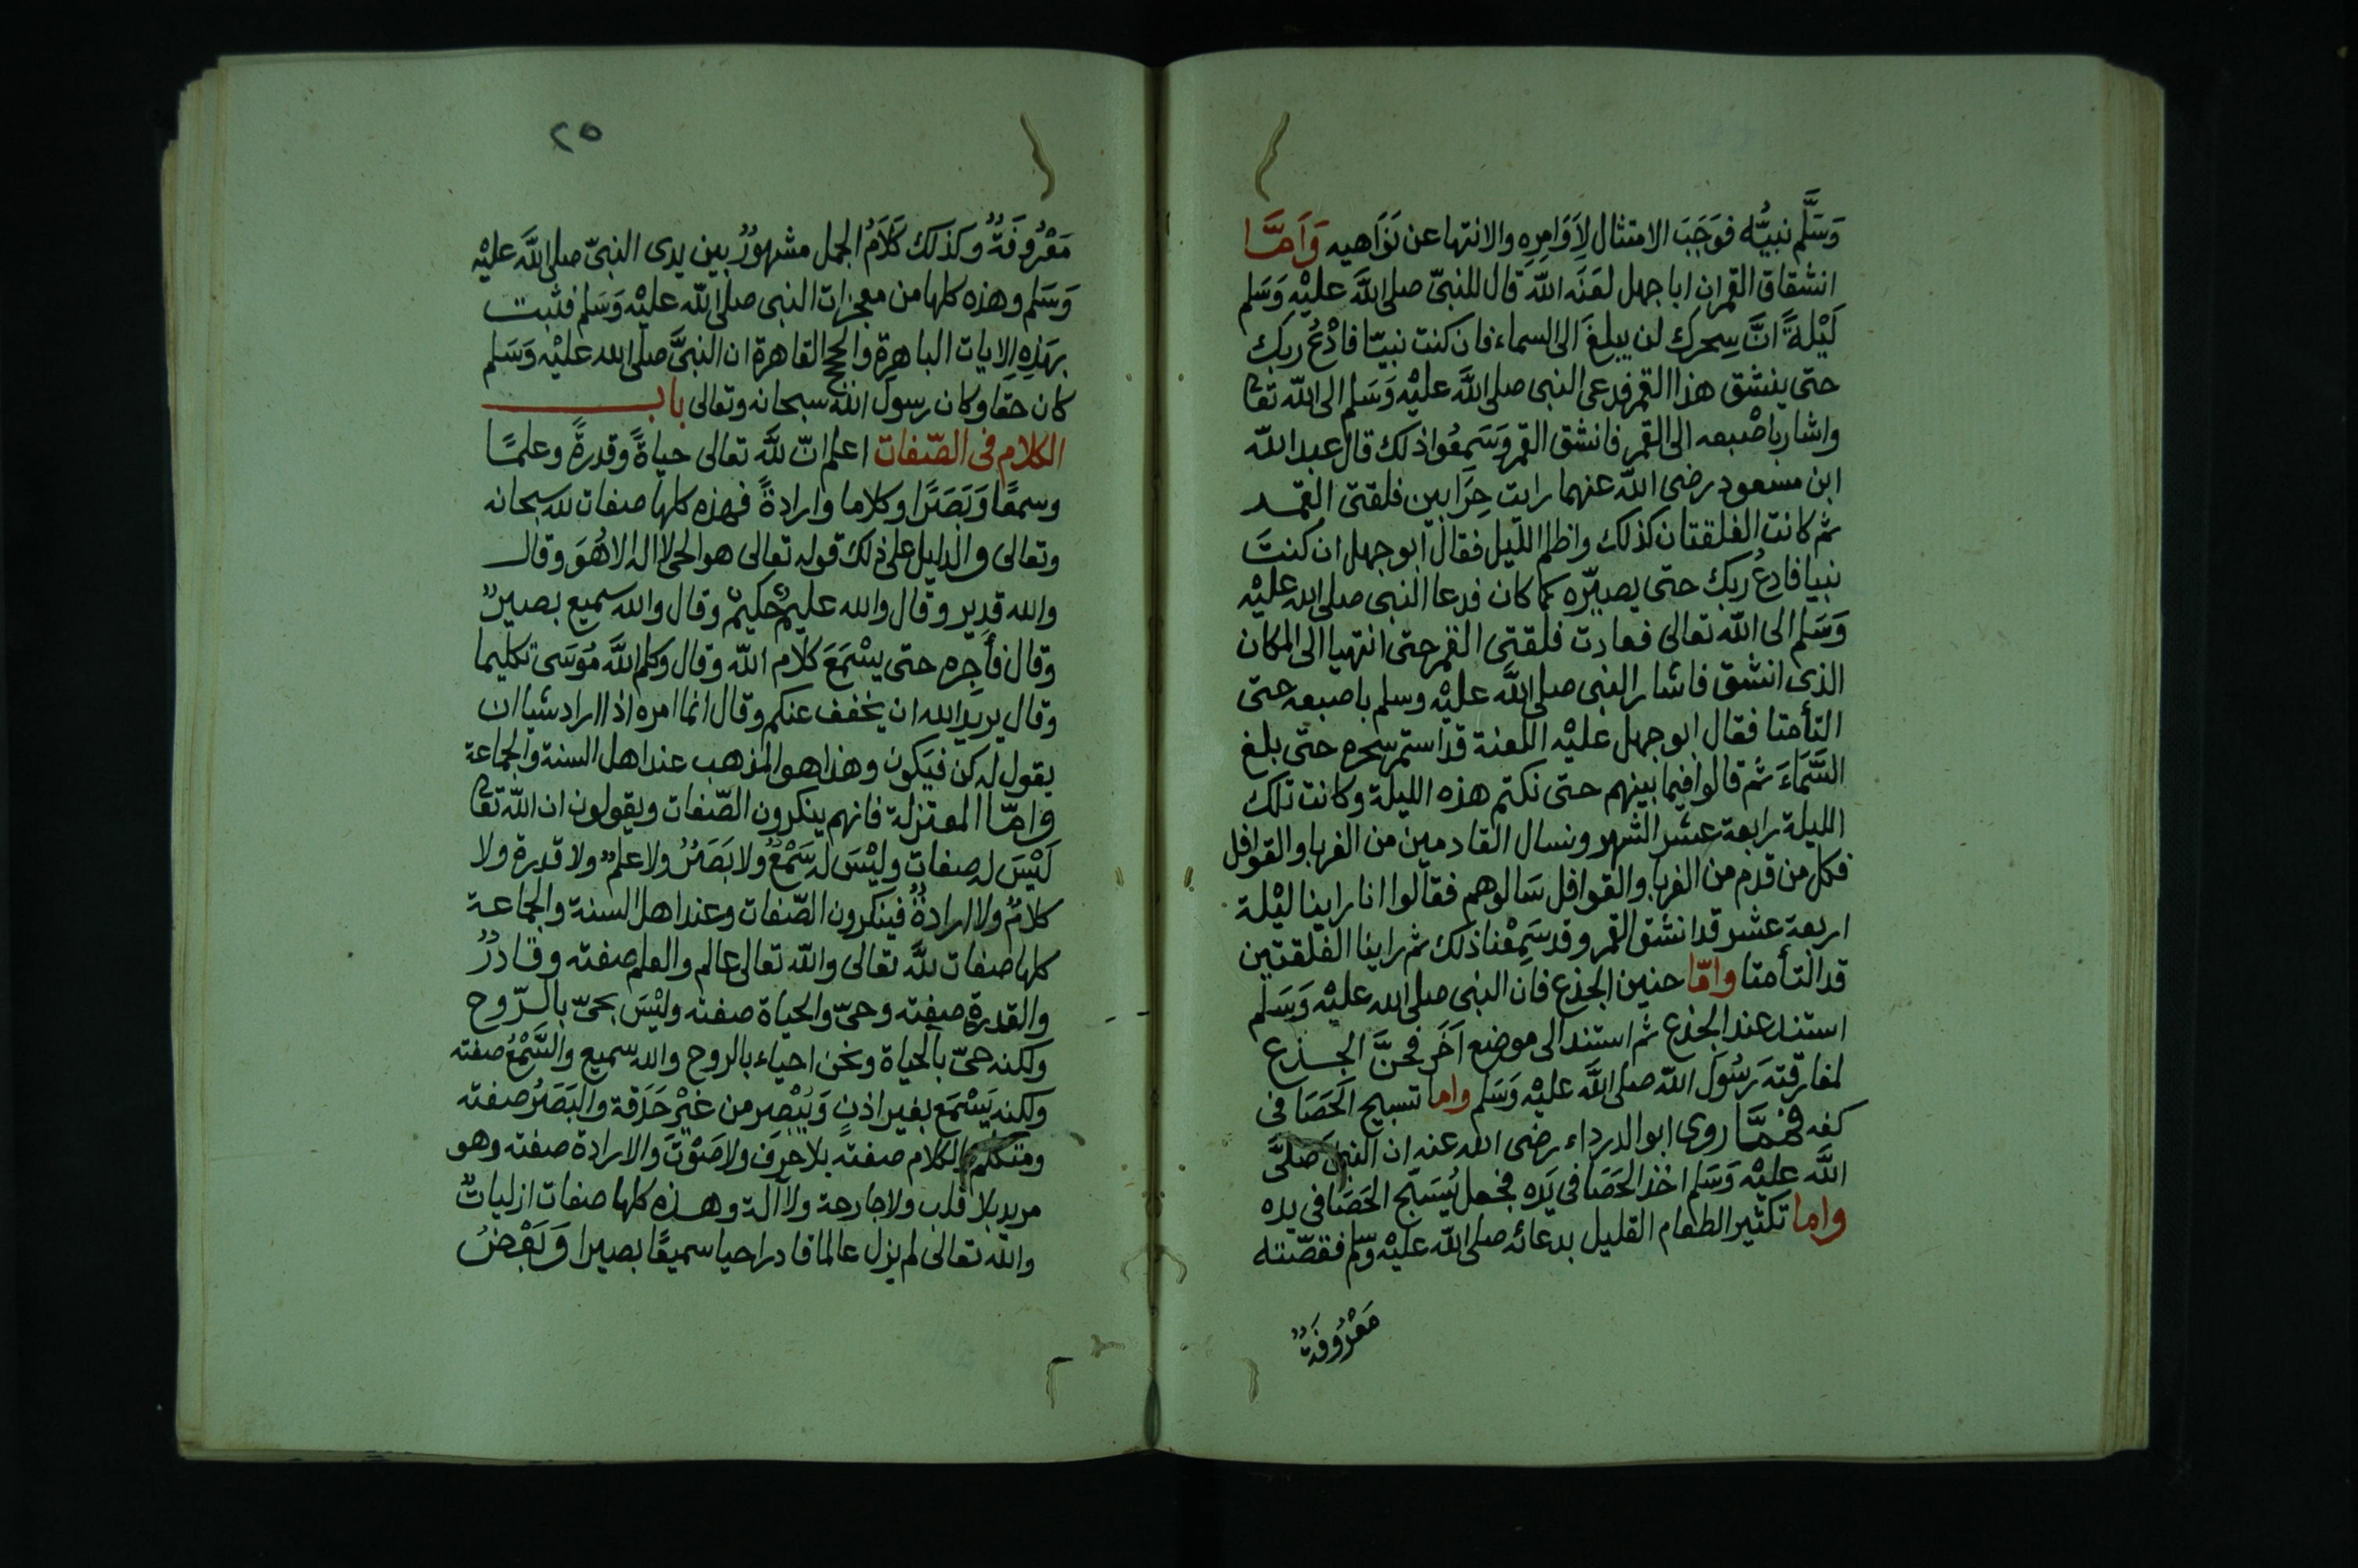 وَسَلَّم نبيُّه فوَجَبَ الامتثال لِاَوَامِرِه والانتها عن نَوَاهيه وَاَمَّا
انشقاق القمر ان ابا جهل لعَنَه الله قال للنبيّ صلى اللَّه عليْه وَسَلم
لَيْلةً انَّ سِحرك لن يبلغَ الى السماء فان كنت نبيّا فادْعُ ربك
حتى ينشق هذا القمر فدعى النبى صلى اللَّه عليْه وَسَلم الى اللّه تعا
واشار باصْبعه الى القمر فانشق القمر وَسَمِعُوا ذلك قال عبد اللّه
ابن مسعود رضى اللّه عنهما رايت حِرَا بين فلقتى القمر
ثم كانت الفلقتان كذلك واظلم الليل فقال ابو جهل ان كنتَ
نبيا فادعُ ربك حتى يصيّره كما كان فدعا النبى صلى الله عليْه
وَسَلم الى اللّه تعالى فعادت فلقتى القمر حتى انتهيا الى المكان
الذى انشق فاشار النبى صلى اللَّه عليْه وسلم باصبعه حتى
التأمتا فقال ابو جهل عليْه اللعنة قد استمر سحره حتّى بلغ
السَّمَاءَ ثم قالوا فيما بينهم حتى نكتم هذه الليلة وكانت تلك
الليلة رابعة عشر الشهر ونسال القادمين من الغربا والقوافل
فكل من قدم من الغربا والقوافل سَالوهم فقالوا انا راينا ليْلة
اربعة عشر قد انشق القمر وقد سَمِعْنا ذلك ثم راينا الفلقتين
قد التأمتا وامّا حنين الجذع فان النبى صلى الله عليْه وَسَلم
استند عند الجذع ثم استند الى موضع آخَر فحنَّ الجذع
لمفارقته رَسُولَ اللّه صلى اللَّه عليْه وَسَلم واما تسبيح الحَصَا فى
كفه فمَّما روى ابو الدرداء رضى الله عنه ان النبى صَلى
اللَّه عليْه وَسَلم اخذ الحَصَا فى يَده فجعل يُسَبّح الحَصَا فى يده
واما تكثير الطعام القليل بدعائه صلى اللّه عليْه وسّلم فقصّته
مَعْرُوفَةٌ
٢٥
مَعْرُوفَةٌ وكذلك كَلَامُ الجمل مشهورٌ بين يدى النبىّ صلى اللَّه عليْه
وَسَلم وهذه كلها من معجزات النبى صلى اللّه عليْه وَسَلم فثبت
بهَذِهِ الايات الباهِرة والحجج القاهرة ان النبىَّ صلى الله عليْه وَسَلم
كان حقا وكان رسول اللّه سبحانه وتعالى باب
الكلام فى الصّفات اعلم انّ للَّه تعالى حياةً وقدرةً وعلمًا
وسمعًا وَبَصَرًا وكلاما وارادةً فهذه كلها صفات لله سبحانه
وتعالى والدليل على ذلك قوله تعالى هو الحى لا اله الا هُوَ وقال
والله قدير وقال والله عليمٌ حكيمٌ وقال والله سميع بصيرٌ
وقال فأجِره حتى يسْمَعَ كلام اللّه وقال وكلم اللَّه مُوسَى تكليما
وقال يريد الله ان يخفف عنكم وقال انما امره اذا اراد شيا ان
يقول له كن فيَكون وهذا هو المذهب عند اهل السنة والجماعة
وامّا المعتزلة فانهم ينكرون الصّفات ويقولون ان اللّه تعا
لَيْسَ له صفات وليْسَ له سَمْعٌ ولا بَصَرٌ ولا علمٌ ولا قدرة ولا
كلامٌ ولا ارادةٌ فينكرون الصّفات وعند اهل السنة والجماعة
كلها صفات للَّه تعالى واللّه تعالى عالم والعلم صفته وقادرٌ
والقدرة صفته وحىّ والحياة صفته وليْسَ بحىّ بالرّوح
ولكنه حىّ بالحياة ونحن احياء بالروح والله سميع والسَّمْعُ صفته
ولكنه يَسْمَع بغير اذنٍ وَيُبْصِر من غيْر حَدَقة والبَصَرُ صفته
ومتكلم والكلام صفته بلا حرفَ ولا صَوْتَ والارادة صفته وهو
مريد بلا قلب ولا جارحة ولا آلة وهذه كلها صفات ازلياتٌ
واللّه تعالى لم يزل عالما قادرا حيا سميعًا بصيرا وَبَعْضُ